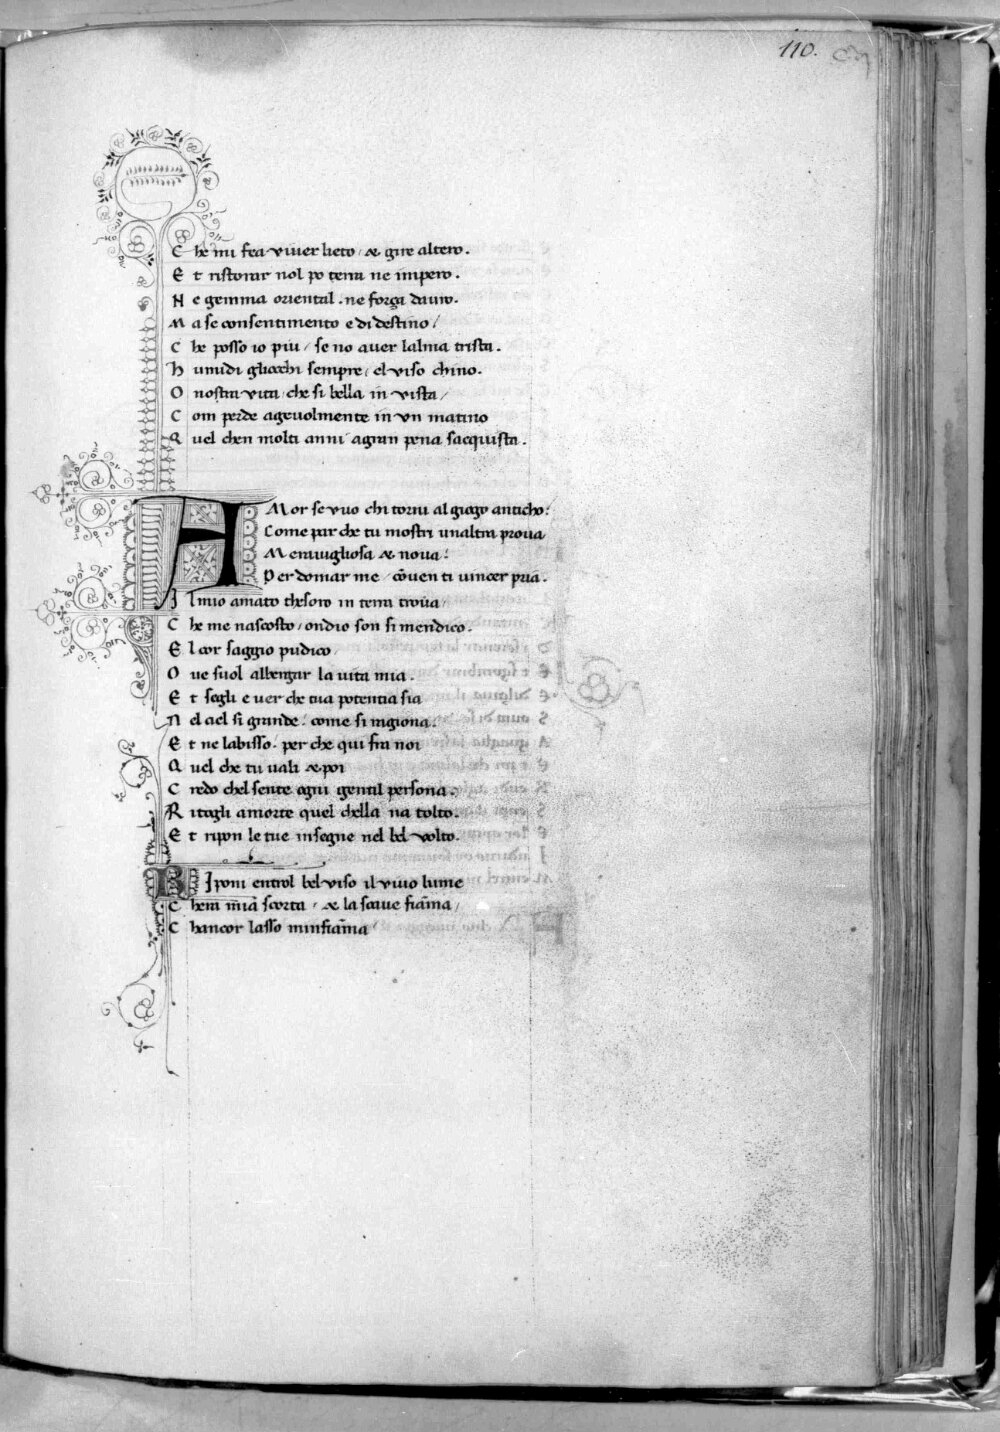 110.
C he mi fea viuer lieto / & gire altero.
E t ristorar nol po terra ne impero.
N e gemma oriental . ne força dauro.
M a se consentimento e di destino /
C he posso io piu / se no auer lalma trista.
h umidi gliocchi sempre / el viso chino.
O nostra vita / che si bella in vista /
C om perde ageuolmente in vn matino
Q uel chen molti anni agran pena sacquista.
A Mor se vuo chi torni al giogo anticho:
Come par che tu mostri unaltra proua
Merauigliosa & noua:
Per domar me / cōuen ti vincer pria.
I l mio amato thesoro in terra troua /
C he me nascosto / ondio son si mendico.
E l cor saggio pudico
O ue suol albergar la uita mia.
E t segli e ver che tua potentia sia
N el ciel si grande: come si ragiona:
E t ne labisso. per che qui fra noi
Q uel che tu uali & poi
C redo chel sente ogni gentil persona:
R itogli a morte quel chella na tolto.
E t ripon le tue insegne nel bel volto.
R Iponi entrol bel viso il viuo lume
C hera mia scorta / & la soaue fiāma /
C hancor lasso minfiāma